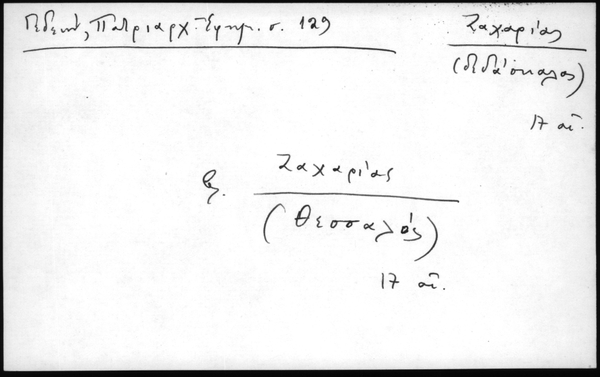 Γεδεών, Πατριαρχ. Εφημ. σ. 129
Ζαχαρίας
(διδάσκαλος)
17 αἰ.
Ζαχαρίας
(Θεσσαλός)
17 αἰ.